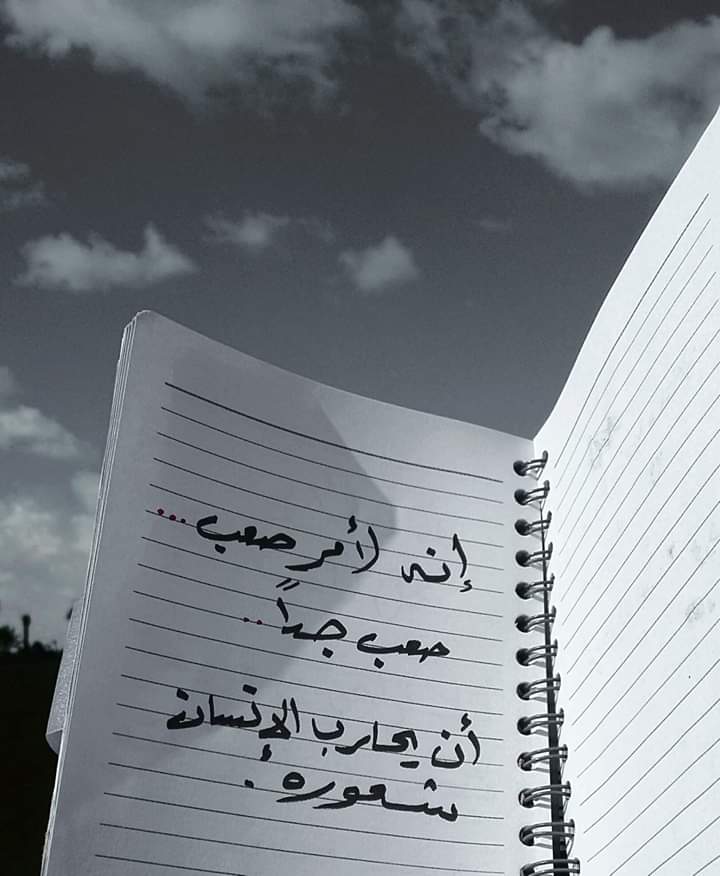 إنه لأمرٍ صعب...
صعب جداً..
أن يحارب الإنسان
شعوره!